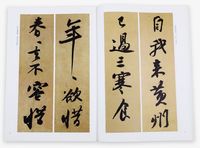 自我来黄州
已過三寒食
年〻欲惜
春〻去不容惜